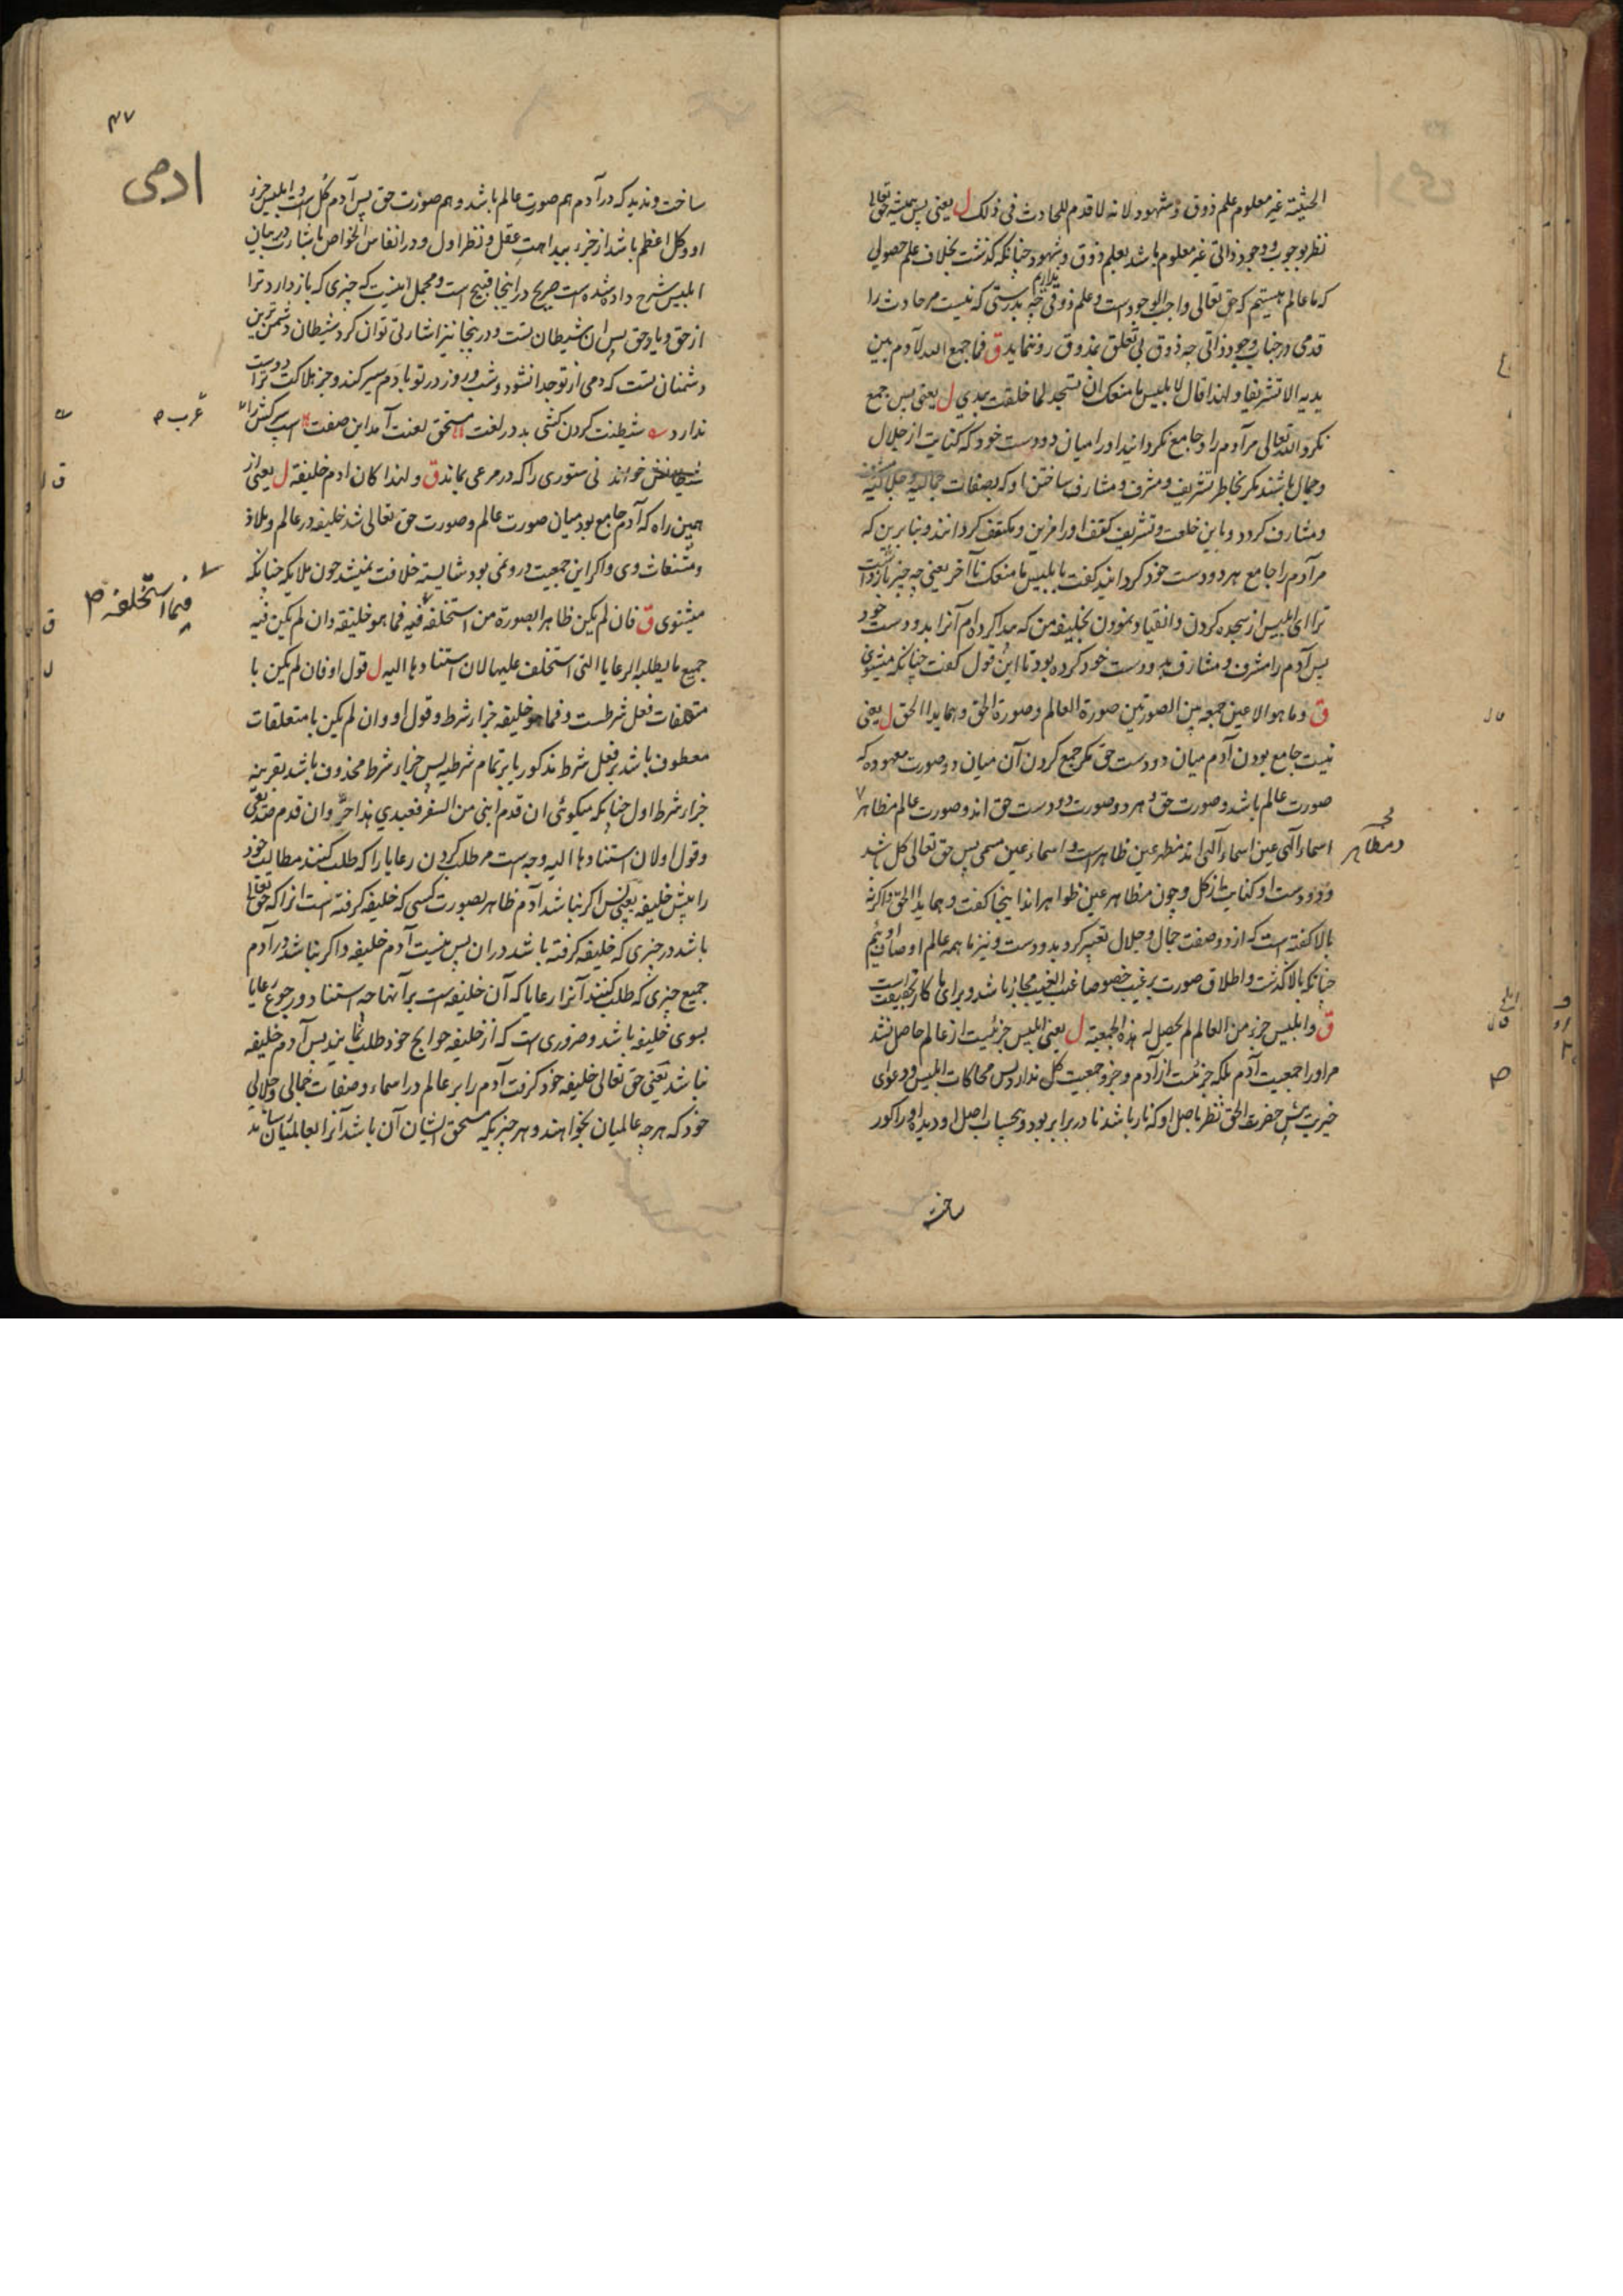 الحیثیة غیر معلوم علم ذوق و شهود لانه لا قدم للحادث فی ذلک ل یعنی پس همیشه حق تعالی
نظر بوجوب وجود ذاتی غیر معلوم باشد بعلم ذوق و شهود چنانکه گذشت بخلاف علم حصولی
که ما عالم هستیم که حق تعالی واجب الوجودست و علم ذوقی نداریم چه بدرستی که نیست مر حادث را
قدمی در جناب وجود ذاتی چه ذوق بی تعلق بمذوق رو ننماید ق فما جمع الله لآدم بین
یدیه الا تشریفا و لهذا قال لابلیس ما منعک ان تسجد لما خلقت بیدی ل یعنی پس جمع
نکرد الله تعالی مر آدم را و جامع نگردانید او را میان دو دست خود که کنایت از جلال
و جمال باشند مگر بخاطر تشریف و مشرف و مشارف ساختن او که بصفات جمالیه و جلالیه مشرف
و مشارف گردد و باین خلعت و تشریف کتف او را مزین و مکتف گردانند و بنا برین که
مر آدم را جامع هر دو دست خود گردانید گفت با ابلیس ما منعک تا آخر یعنی چه چیز بازداشت
ترا ای ابلیس از سجده کردن و انقیاد نمودن بخلیفه من که پیدا کرده‌ام آنرا بدو دست خود
پس آدم را مشرف و مشارف بدو دست خود کرده بود تا این قول گفت چنانکه میشنوی
ق و ما هو الا عین جمعه بین الصورتین صورة العالم و صورة الحق و هما یدا الحق ل یعنی
نیست جامع بودن آدم میان دو دست حق مگر جمع کردن آن میان دو صورت معهوده که
صورت عالم باشد و صورت حق و هر دو صورت دو دست حق اند و صورت عالم مظاهر
اسماء الهی عین اسماء الهی اند مظهر عین ظاهرست و اسماء عین مسمی پس حق تعالی کل باشد
و دو دست او کنایت از کل و چون مظاهر عین ظواهر اند اینجا گفت و هما یدا الحق و اگرنه
بالا گفته است که از دو صفت جمال و جلال تعبیر کرد بدو دست و نیز ما همه عالم اوصاف اوئیم
چنانکه بالا گذشت و اطلاق صورت بر غیب خصوصا غیب الغیب مجاز باشد و برای ما کار بحقیقت است
ق و ابلیس جزء من العالم لم یحصل له هذه الجمعیة ل یعنی ابلیس جزئیست از عالم حاصل نشد
مر او را جمعیت آدم بلکه جزئست از آدم و جزو جمعیت کل ندارد پس محاکات ابلیس و دعوای
خیریت پیش حضرت الحق نظر باصل او که نار باشد نا در برابر بود و بحسب اصل او دیده او را کور
ساخت
و مظاهر
۴۷
ادمی
ساخت و ندید که در آدم هم صورت عالم باشد و هم صورت حق پس آدم کل است و ابلیس جزء
او و کل اعظم باشد از جزء ببداهت عقل و نظر اول و در انفاس الخواص باشارت در بیان
ابلیس شرح داده شده است صریح در اینجا قبیح است و مجمل اینست که چیزی که باز دارد ترا
از حق و یاد حق پس آن شیطان تست و درینجا نیز اشارتی توان کرد شیطان دشمن ترین
دشمنان تست که دمی از تو جدا نشود و شب و روز در تو با دم سیر کند و جز هلاکت ترا دوست
ندارد شیطنت کردن کشی بد در لغت مستحق لعنت آمد این صفت اسپ سرکش را
شیطانش خواند نی ستوری را که در مرعی بماند ق و لهذا کان ادم خلیفة ل یعنی از
همین راه که آدم جامع بود میان صورت عالم و صورت حق تعالی شد خلیفه در عالم و ملاذ
و مستغاث وی و اگر این جمعیت درو نمی بود شایسته خلافت نمیشد چون ملایکه چنانکه
میشنوی ق فان لم یکن ظاهرا بصورة من استخلفه فیه فما هو خلیفة و ان لم یکن فیه
جمیع ما یطلبه الرعایا التی استخلف علیها لان استنادها الیه ل قول او فان لم یکن با
متعلقات فعل شرطست و فما هو خلیفه جزاء شرط و قول او و ان لم یکن با متعلقات
معطوف باشد بر فعل شرط مذکور یا بر تمام شرطیه پس جزاء شرط محذوف باشد بقرینه
جزاء شرط اول چنانکه میگوئی ان قدم ابنی من السفر فعبدی هذا حر و ان قدم صدیقی
و قول او لان استنادها الیه وجه است مر طلب کردن رعایا را که طلب کنند مطالب خود
را پیش خلیفه یعنی پس اگر نباشد آدم ظاهر بصورت کسی که خلیفه گرفته است انرا که حق تعالی
باشد در چیزی که خلیفه گرفته باشد در ان پس نیست آدم خلیفه و اگر نباشد در آدم
جمیع چیزی که طلب کنند آنرا رعایا که آن خلیفه است بر آنها چه استناد و رجوع رعایا
بسوی خلیفه باشد و ضروری است که از خلیفه حوایج خود طلب نمایند پس آدم خلیفه
نباشد یعنی حق تعالی خلیفه خود گرفت آدم را بر عالم در اسماء و صفات جمالی و جلالی
خود که هر چه عالمیان بخواهند و هر چیزیکه مستحق ایشان آن باشد آنرا بعالمیان رساند
عرب
فیما استخلفه